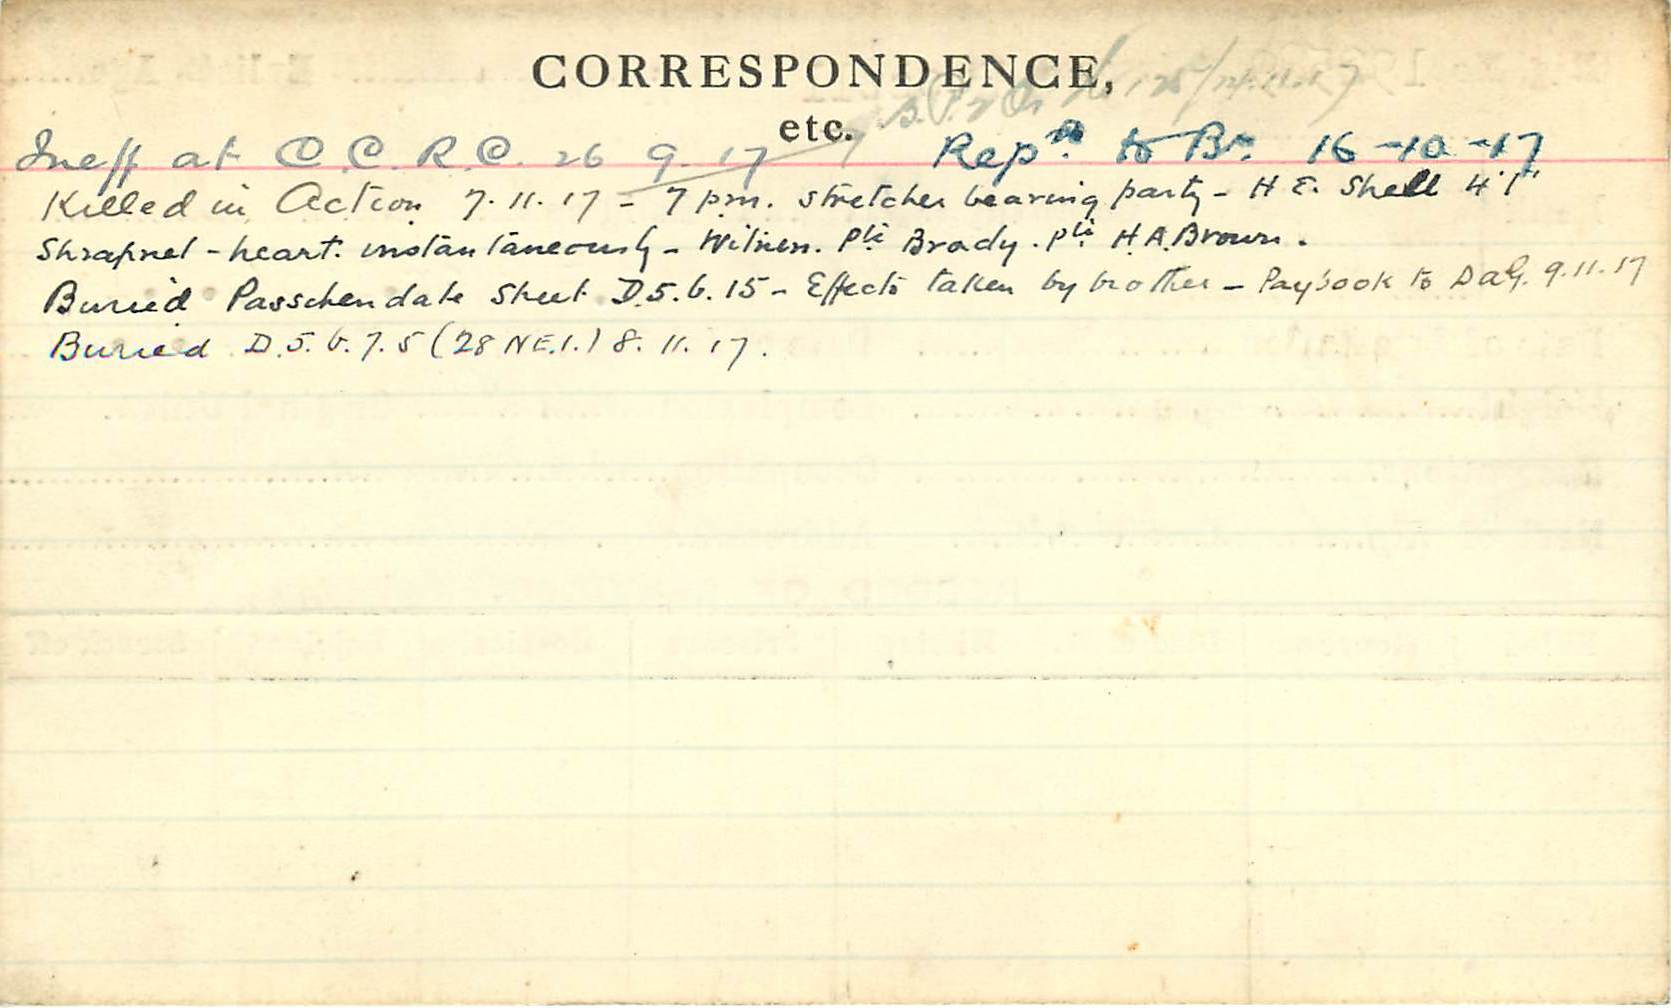 CORRESPONDENCE,
etc.
Ineff at C.C.R.C. 26 9. 17 Rep.d to Bn. 16-10-17
Killed in Action 7.11.17 - 7 pm. stretcher bearing party - H E. Shell 4.1"
Shrapnel - heart. instantaneously - Witness. Pte Brady. Pte H.A. Brown.
Buried Passchendale Sheet D.5.6.15 - Effects taken by brother - Paybook to DAG. 9.11.17
Buried D.5.b.7.5 (28 NE.1.) 8.11.17.